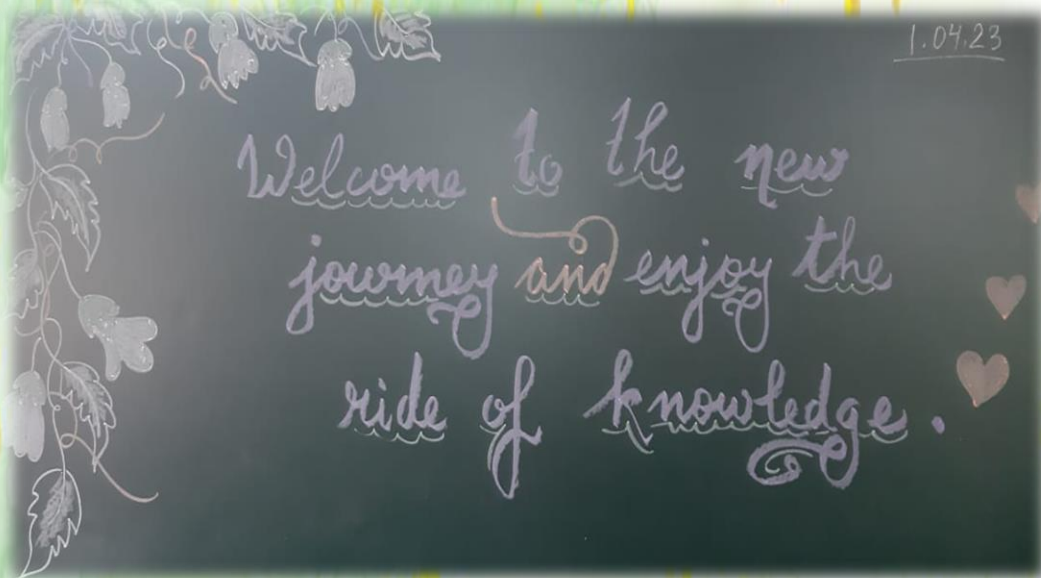 1.04.23
Welcome to the new
journey and enjoy the
ride of knowledge.